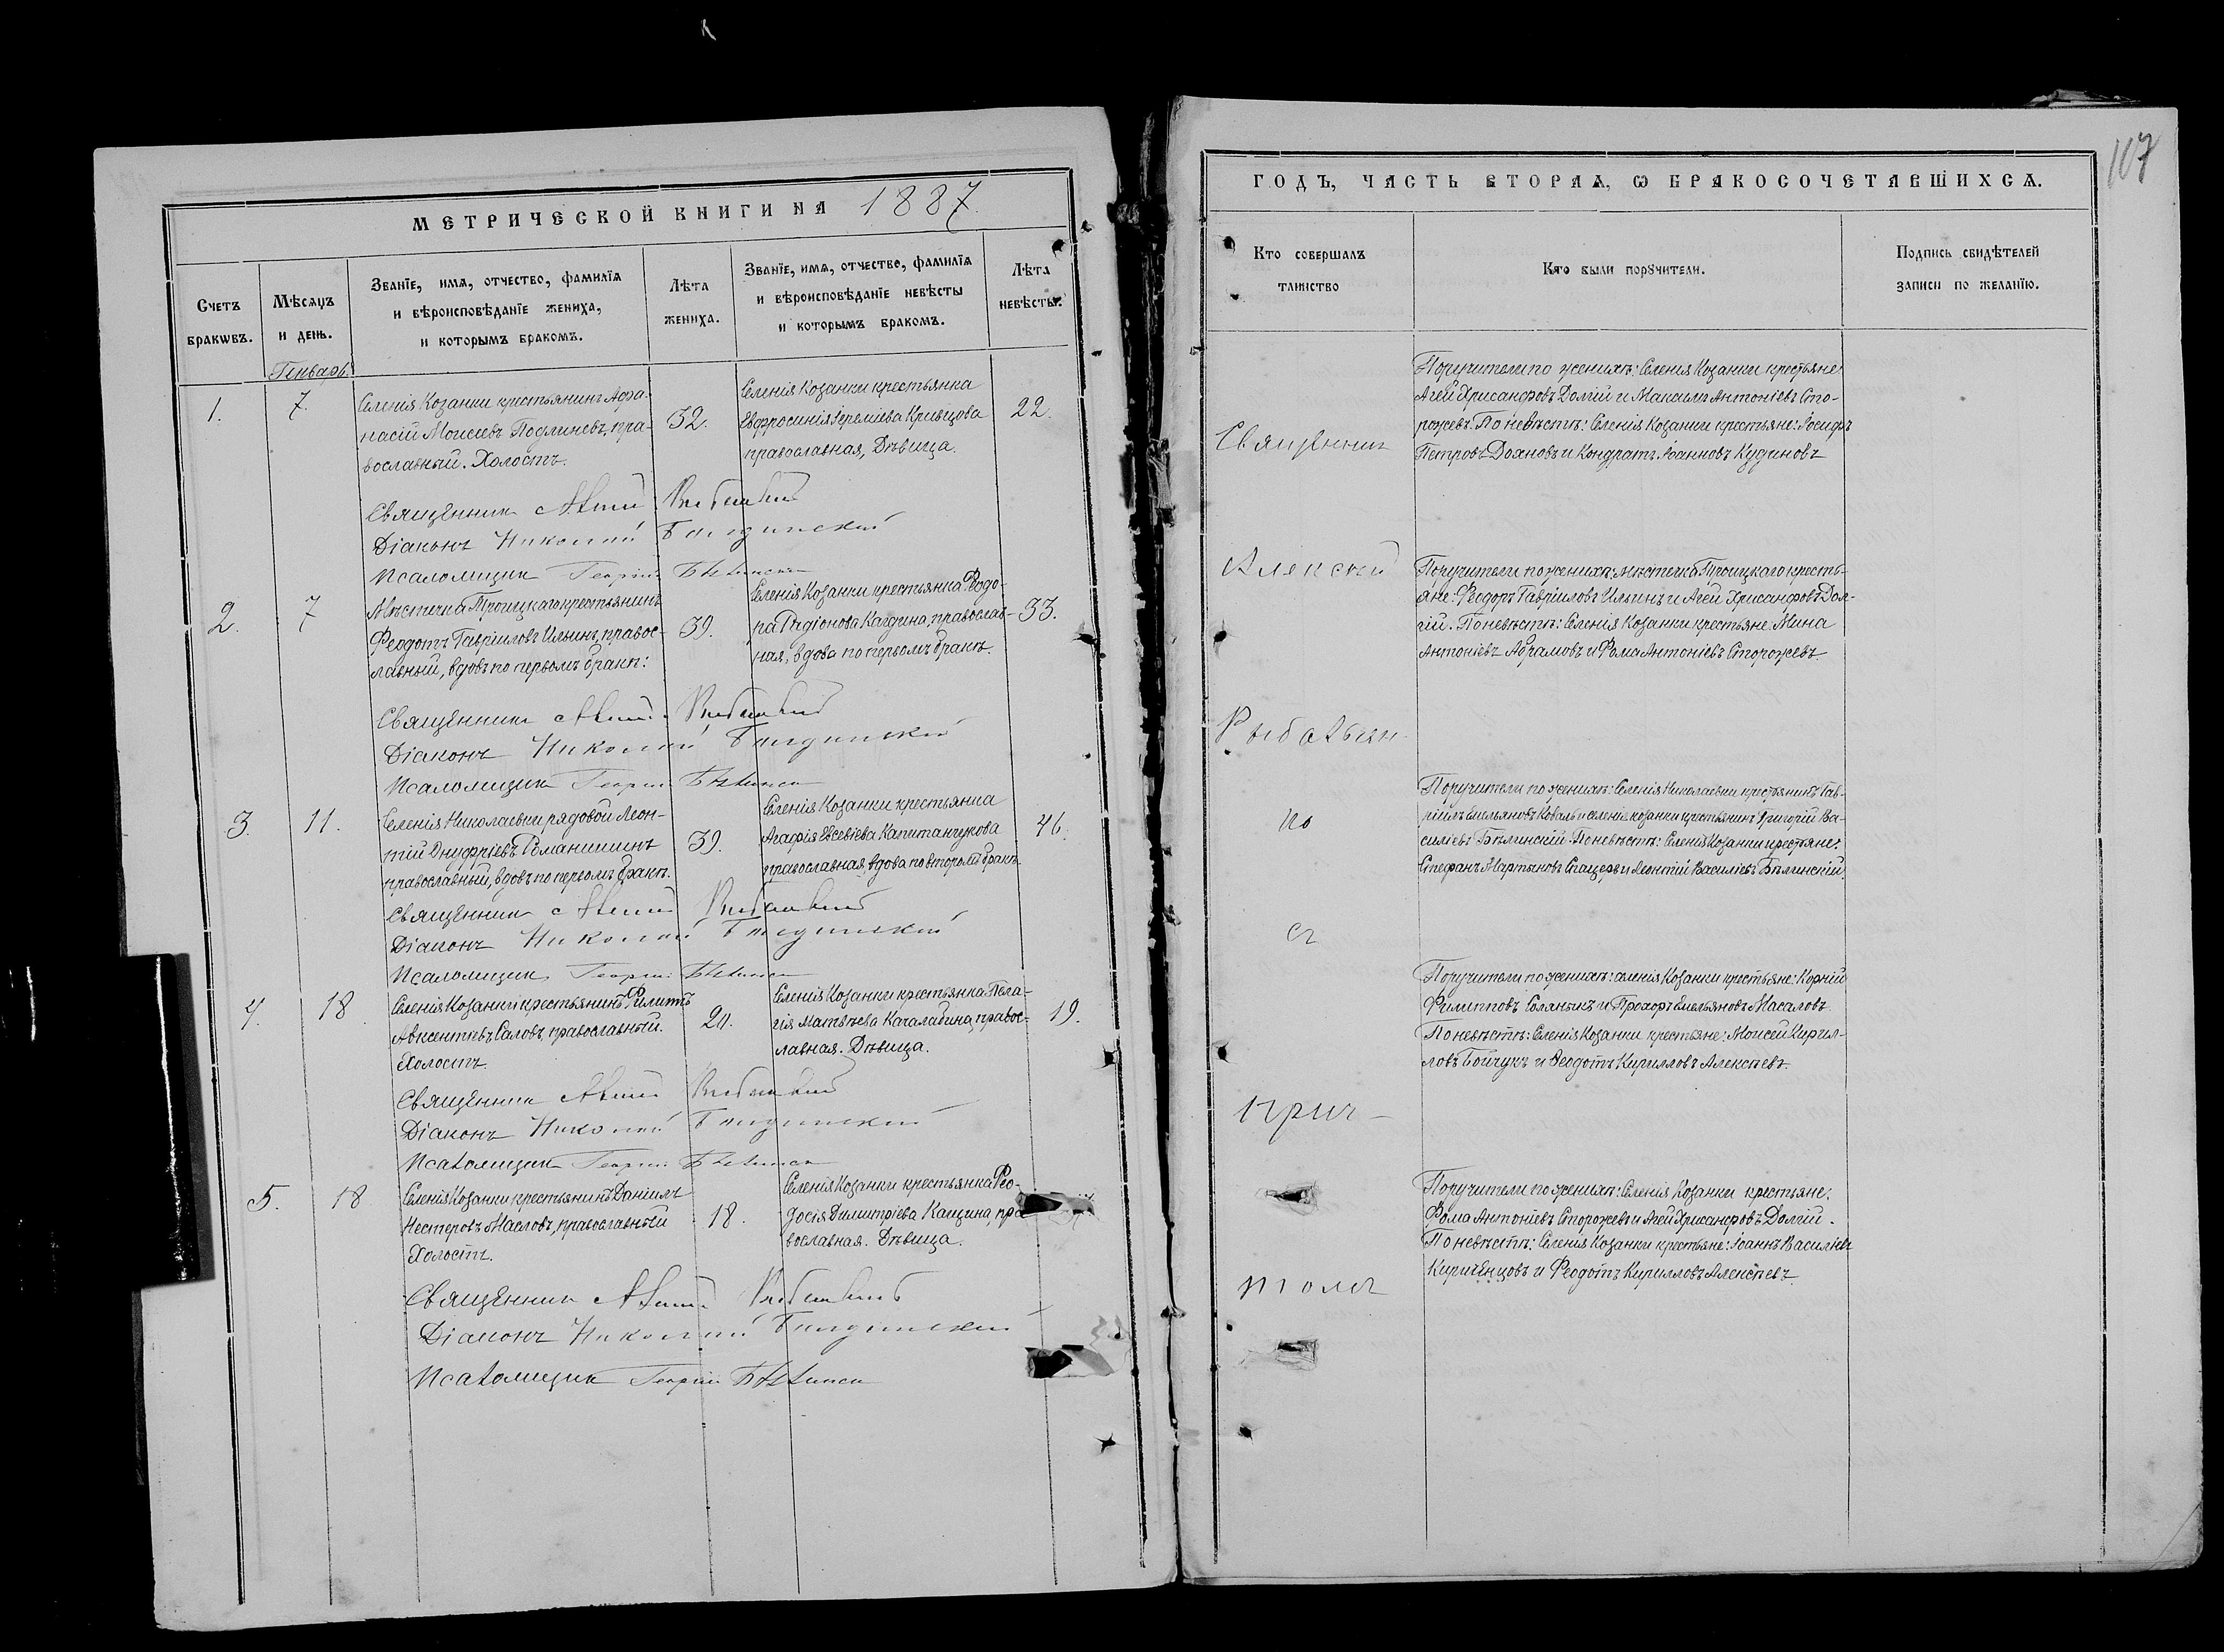 107
МЕТРИЧЕСКОЙ КНИГИ НА 1887.
Счетъ бракѡвъ.
Мѣсяцъ и день.
Званїе, имя, отчество, фамилїя
и вѣроисповѣданїе жениха,
и которымъ бракомъ.
Лѣта жениха.
Званїе, имя, отчество, фамилїя
и вѣроисповѣданїе невѣсты
и которымъ бракомъ.
Лѣта невѣсты.
Генварь.
1.
7.
Селенія Козанки крестьянинъ Афа-
насій Моисеевъ Подлиневъ, пра-
вославный. Холостъ.
32.
Селенія Козанки крестьянка
Евфросинія Іереміева Кривцова
православная, Дѣвица.
22.
Священникъ
Діаконъ Николай
Псаломщик Георгій
2.
7
Мѣстечка Троицкаго крестьянинъ
Феодотъ Гавріиловъ Ильинъ, правос-
лавный, вдовъ по первомъ бракѣ:
39.
Селенія Козанки крестьянка Ѳедо-
ра Радіонова Кащина, православ-
ная, вдова по первомъ бракѣ.
33.
Священникъ
Діаконъ Николай
Псаломщик Георгій
3.
11.
Селенія Николаевки рядовой Леон-
тій Онуфріевъ Романишинъ
православный, вдовъ по первомъ бракѣ.
39.
Селенія Козанки крестьянка
Агафія Евсевіева Капитанчукова
православная, вдова по второмъ бракѣ.
46.
Священникъ
Діаконъ Николай
Псаломщик Георгій
4.
18.
Селенія Козанки крестьянинъ Филиппъ
Авксентіевъ Саловъ, православный.
Холостъ.
20.
Селенія Козанки крестьянка Пела-
гія Матвѣева Качалабина, правос-
лавная. Дѣвица.
19.
Священникъ
Діаконъ Николай
Псаломщик Георгій
5.
18
Селенія Козанки крестьянинъ Даніилъ
Нестеровъ Масловъ, православный
Холостъ.
18.
Селенія Козанки крестьянка Ѳео-
досія Димитріева Кащина, пра-
вославная. Дѣвица.
Священникъ
Діаконъ Николай
Псаломщик Георгій
ГОДЪ, ЧАСТЬ ВТОРАѦ, Ѡ БРАКОСОЧЕТАВШИХСѦ.
Кто совершалъ таинство
Кто были порꙋчители.
Подпись свидѣтелей
записи по желанїю.
Священникъ
Алексѣй
Рыбальскі
по
съ
прич-
томъ
Поручители по женихѣ: Селенія Козанки крестьяне:
Агей Хрисанфовъ Долгій и Максимъ Антоніевъ Сто-
рожевъ. По невѣстѣ: Селенія Козанки крестьяне: Іосифъ
Петровъ Дояновъ и Кондратъ Іоанновъ Кудиновъ
Поручители по женихѣ: мѣстечка Троицкаго кресть-
яне: Феодоръ Гавріиловъ Ильинъ и Агей Хрисанфовъ Дол-
гій. По невѣстѣ: Селенія Козанки крестьяне. Мина
Антоніевъ Абрамовъ и Фома Антоніевъ Сторожевъ.
Поручители по женихѣ: Селенія Николаевки крестьянинъ Гав-
ріилъ Емельяновъ Коваль и селенія козанки крестьянинъ Григорій Ва-
силіевъ Бѣлинскій. По невѣстѣ: Селенія Козанки крестьяне:
Стефанъ Мартыновъ Стацеръ и Леонтій Василіевъ Бѣлинскій.
Поручители по женихѣ: селенія Козанки крестьяне: Корній
Филипповъ Соляныкъ и Прохоръ Емельяновъ Масаловъ
По невѣстѣ: Селенія Козанки крестьяне: Моисей Кирил-
ловъ Бойчукъ и Ѳеодотъ Кирилловъ Алексѣевъ.
Поручители по женихѣ: Селенія Козанки крестьяне:
Фома Антоніевъ Сторожевъ и Агей Хрисанфовъ Долгій.
По невѣстѣ: Селенія Козанки крестьяне: Іоаннъ Василіевъ
Киричёнцовъ и Феодотъ Кирилловъ Алексѣевъ.